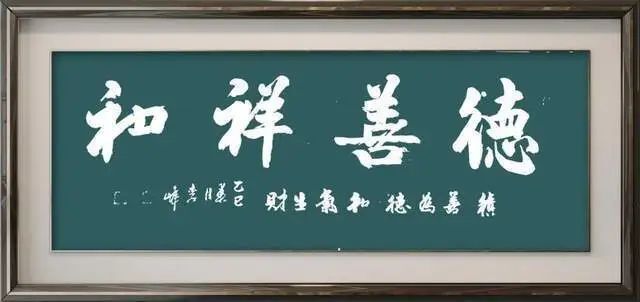 德善祥和
積善為德和氣生財乙巳